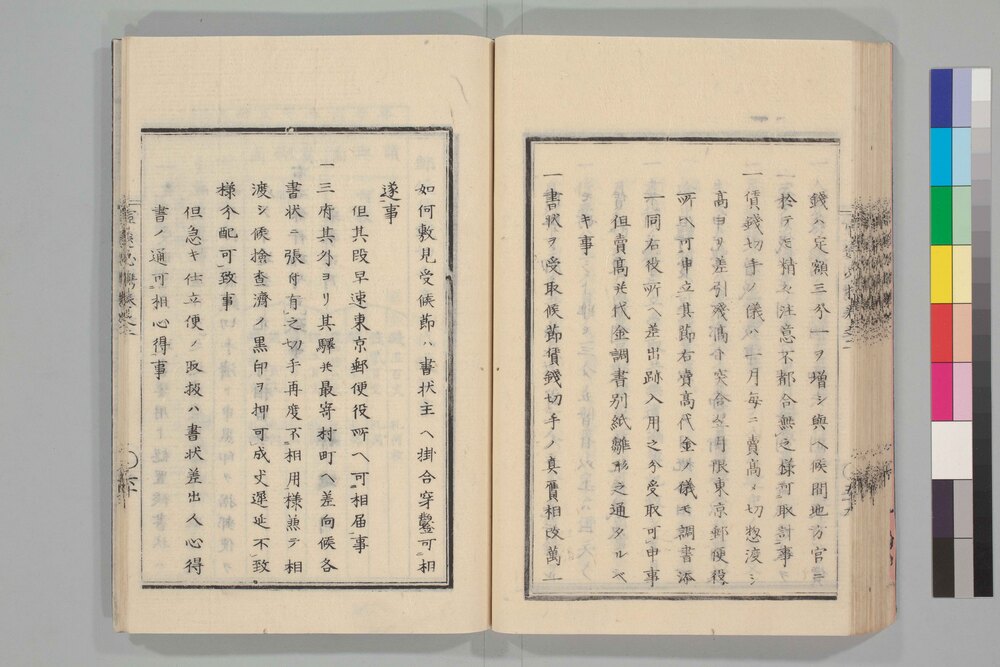 錢ハ定額三分一ヲ増シ與ヘ候間地方官ニ
於テ尤精々注意不都合無之様可取計事
一賃錢切手ノ儀ハ一月毎ニ賣高〆切惣渡シ
高ヨリ差引殘高ト突合翌月限東京郵便役
所ヘ可申立其節右賣高代金ノ儀モ調書添
一同右役所ヘ差出跡入用之分受取可申事
但賣高并代金調書別紙雛形之通タルヘ
キ事
一書状ヲ受取候節賃錢切手ノ真贋相改萬一
如何敷見受候節ハ書状主ヘ掛合穿鑿可相
遂事
但其段早速東京郵便役所ヘ可相届事
一三府其外ヨリ其驛并最寄村町ヘ差向候各
書状ニ張付有之切手再度不相用様兼テ相
渡シ候検査濟ノ黒印ヲ押可成丈遅延不致
様分配可致事
但急キ仕立便ノ取扱ハ書状差出人心得
書ノ通可相心得事